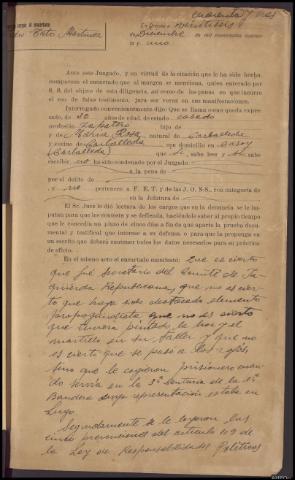 Cito Martinez
Diciembre de mil novecientos cuarenta
y uno.
Ante este Juzgado, y en virtud de la citación que le ha sido hecha,
comparece el encartado que al margen se menciona, quien enterado por
S. S. del objeto de esta diligencia, así como de las penas en que incurre
el reo de falso testimonio, jura ser veraz en sus manifestaciones.
Interrogado convenientemente dijo: Que se llama como queda expre-
sado, de 30 años de edad, de estado casado
profesión Zapatero hijo de
y de Rosa natural de Carballeda
y vecino de Carballeda que domicilio en
(Carballeda) que sabe leer y
escribir no ha sido condenado por el Juzgado
a la pena de
por el delito de
y no pertenece a F. E. T. y de las J. O. N-S. con categoría de
en la Jefatura de
El Sr. Juez le dió lectura de los cargos que en la denuncia se le im-
putan para que los conteste y se defienda, haciéndole saber al propio tiempo
que le concede un plazo de cinco días a fin de que aporte la prueba docu-
mental y testifical que interese a su defensa o para que la proponga en
un escrito que deberá contener todos los datos necesarios para su práctica
de oficio.
En el mismo acto el encartado manifestó: Que es cierto
que fué Secretario del Comité de Iz-
quierda Republicana, que no es cier-
to que haya sido destacado elemento
propagandista, que no es cierto
que tuviera pintado la hoz y el
martillo en su taller y que no
es cierto que se pasó a los rojos,
sino que le cogieron prisionero cuan-
do servía en la 3ª Centuria de la 1ª
Bandera cuya representación estaba en
Lugo.
Seguidamente se le leyeron las
cinco prevenciones del artículo 49 de
la Ley de Responsabilidades Políticas